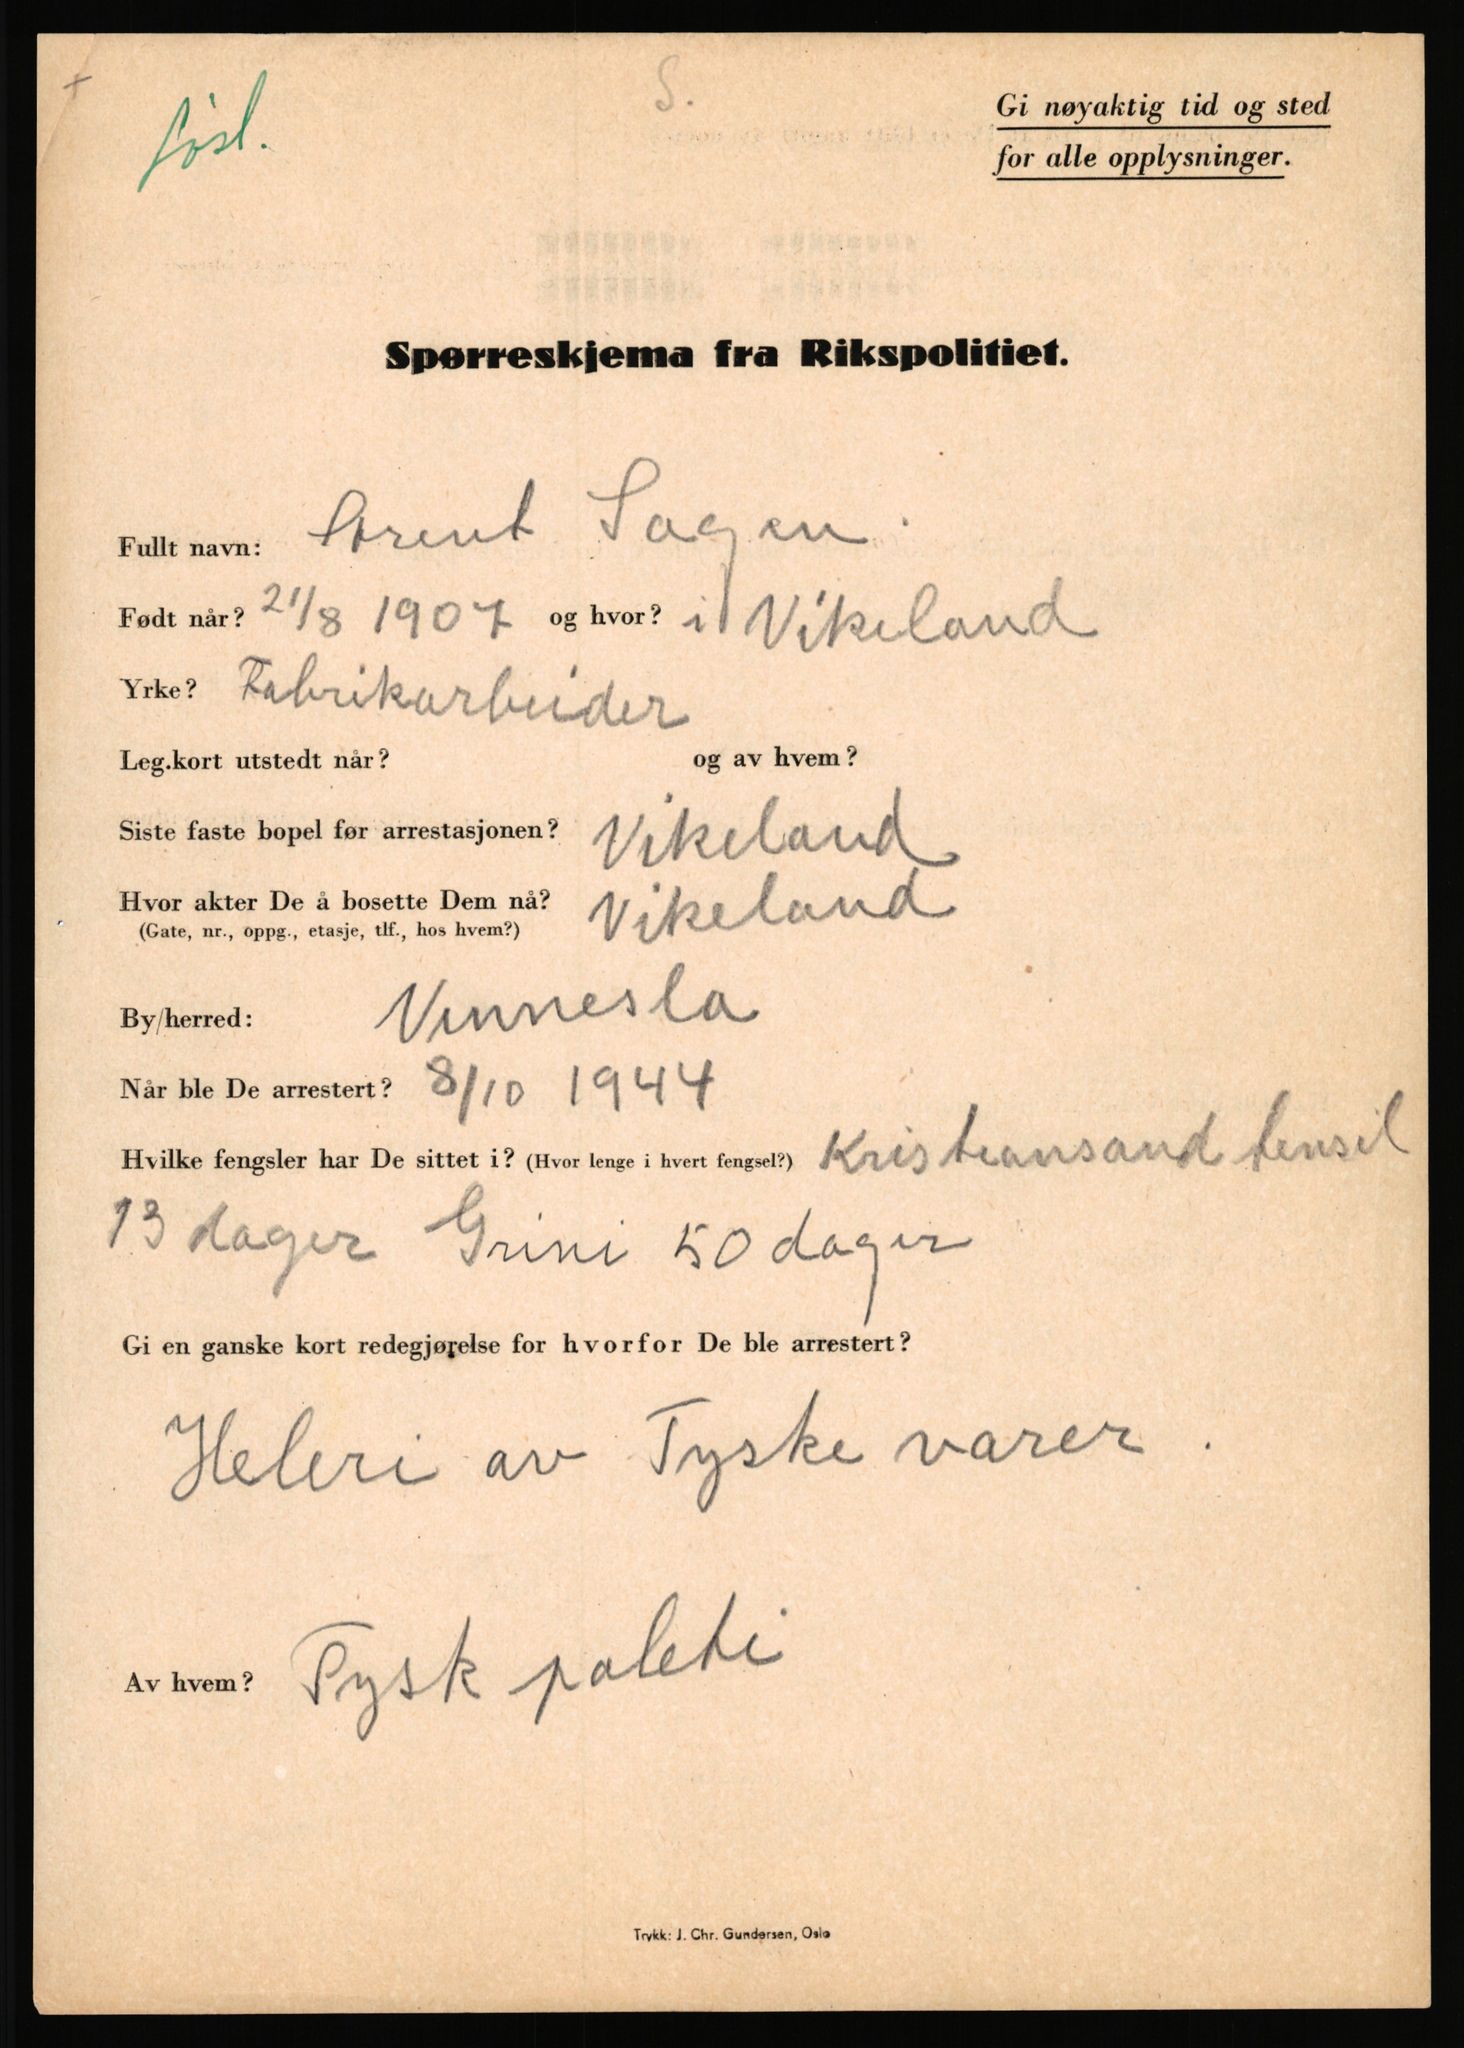 S.
Gi nøyaktig tid og sted
for alle opplysninger.
Spørreskjema fra Rikspolitiet.
Fullt navn: Arent Sagen.
Født når? 21/8 1907 og hvor? i Vikeland
Yrke? Fabrikarbeider
Leg.kort utstedt når? og av hvem?
Siste faste bopel før arrestasjonen? Vikeland
Hvor akter De å bosette Dem nå? Vikeland
(Gate, nr., oppg., etasje, tlf., hos hvem?)
By/herred: Vennesla
Når ble De arrestert? 8/10 1944
Hvilke fengsler har De sittet i? (Hvor lenge i hvert fengsel?) Kristiansand
13 dager Grini 50 dager
Gi en ganske kort redegjørelse for hvorfor De ble arrestert?
Heleri av Tyske varer.
Av hvem? Tysk poleti
Trykk: J. Chr. Gundersen, Oslo